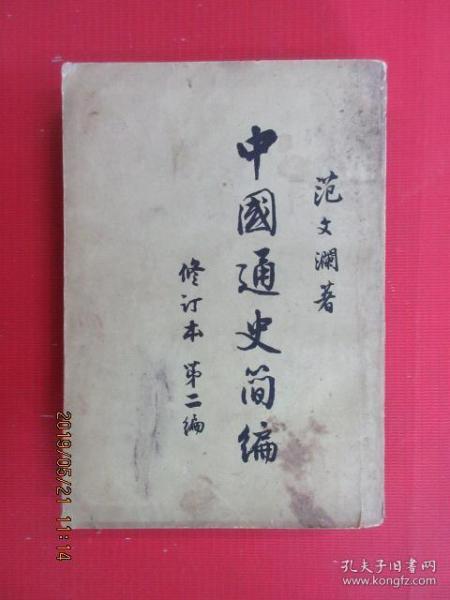 范文瀾著
中國通史简编
修订本 第二编
2019/05/21 11:14
孔夫子旧书网
www.kongfz.com